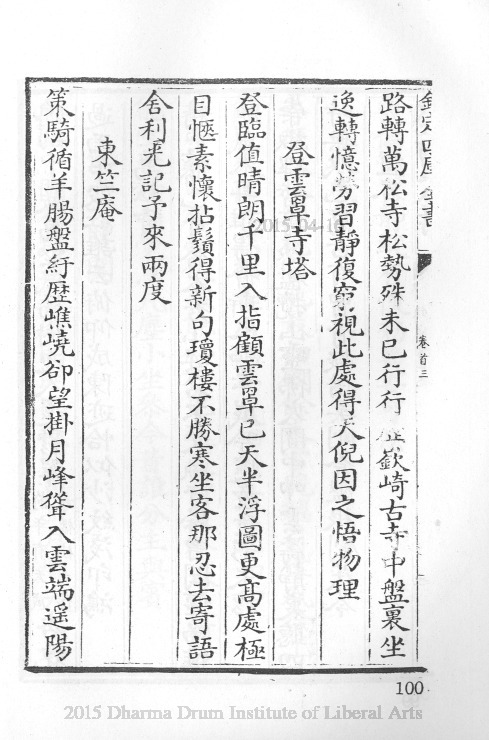 欽定四庫全書
卷首三
路轉萬松寺松勢殊未已行行歷嶔崎古寺中盤裏坐
逸轉憶勞習靜復窮視此處得天倪因之悟物理
登雲罩寺塔
登臨值晴朗千里入指顧雲罩已天半浮圖更高處極
目愜素懷拈鬚得新句瓊樓不勝寒坐客那忍去寄語
舍利光記予來兩度
東竺庵
策騎循羊腸盤紆歷嶕嶢卻望掛月峰聳入雲端遥陽
100
2015 Dharma Drum Institute of Liberal Arts